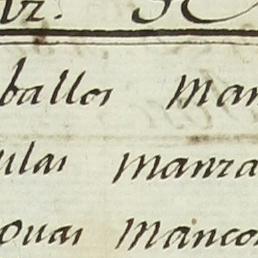 ballos Man
ulas Manza
ouas Mancor